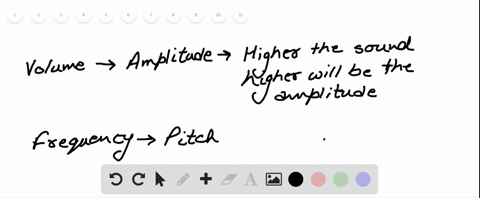 1 2 3 4 5 6 7 8 9 10 11
Volume → Amplitude → Higher the sound
higher will be the
amplitude
Frequency → Pitch
A